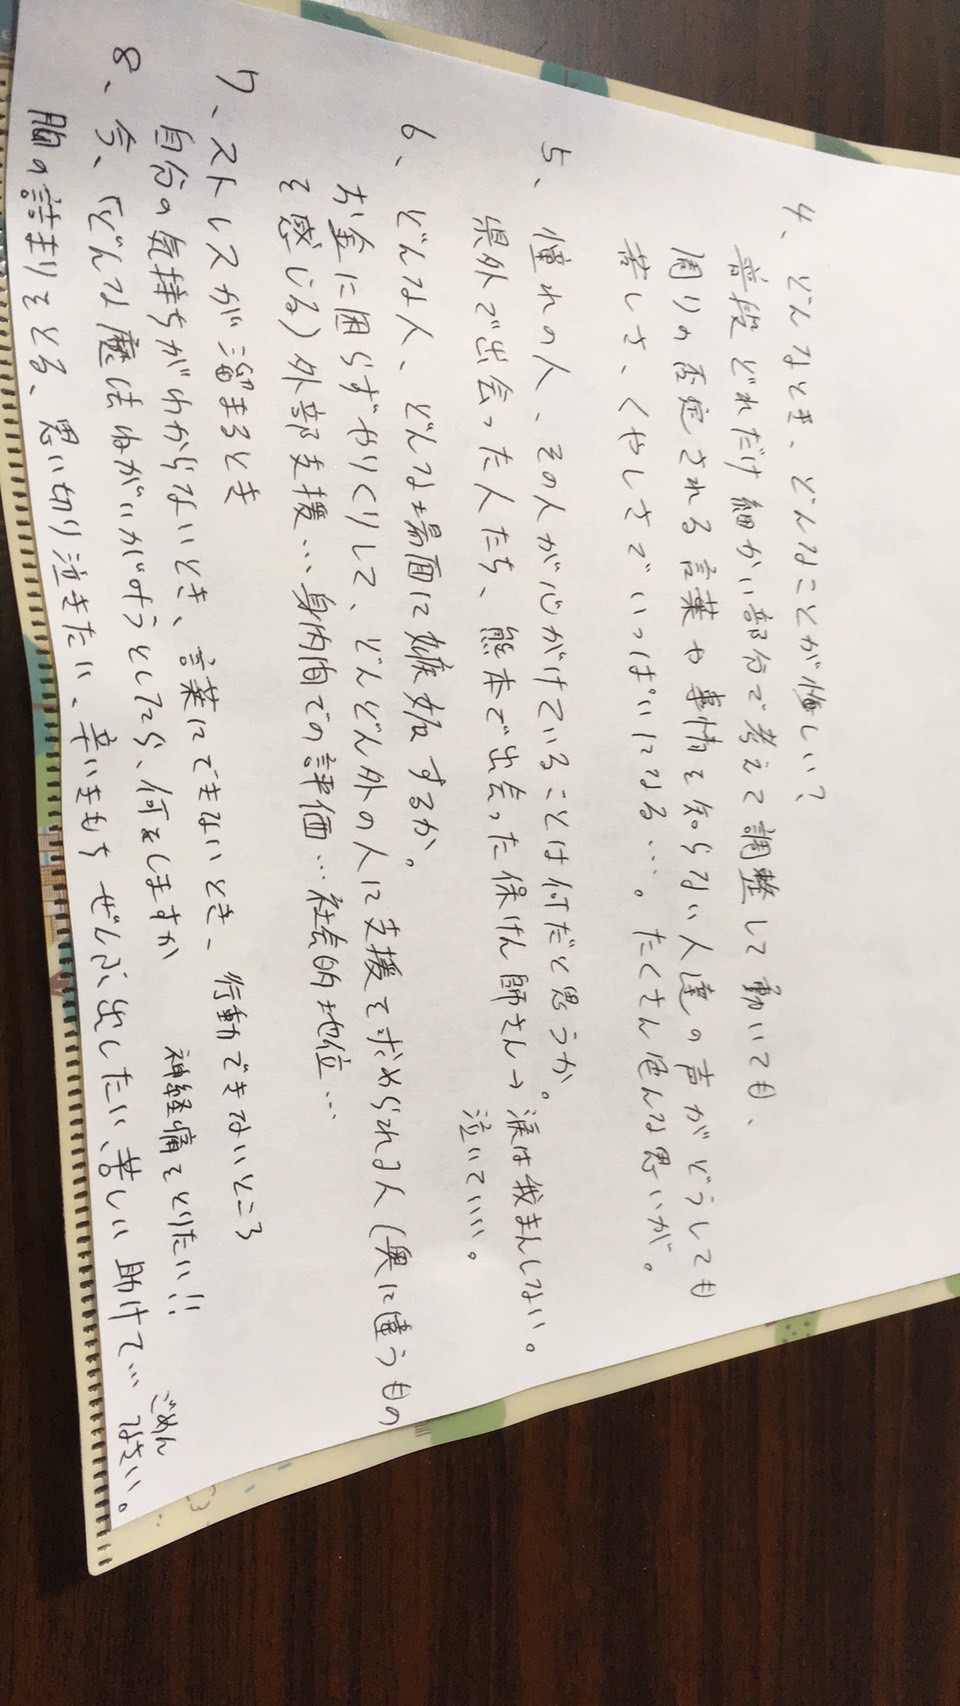 4、どんなとき、どんなことが悔しい？
普段どれだけ細かい部分で考えて調整して動いても、
周りの否定される言葉や事情を知らない人達の声がどうしても
苦しさ、くやしさでいっぱいになる…。たくさん色んな思いが。
5、憧れの人、その人が心がけていることは何だと思うか。
県外で出会った人たち、熊本で出会った保けん師さん→涙は我まんしない。
泣いていい。
6、どんな人、どんな場面に嫉妬するか。
お金に困らずやりくりして、どんどん外の人に支援を求められる人（奥に違うもの
を感じる）外部支援…身内内での評価…社会的地位…
7、ストレスが溜まるとき
自分の気持ちがわからないとき、言葉にできないとき、行動できないところ
8、今、「どんな魔法ねがいが叶うとしたら、何をしますか
神経痛をとりたい!!
脳の詰まりをとる、思い切り泣きたい、辛いきもち ぜんぶ出したい、苦しい 助けて… ごめん
なさい。